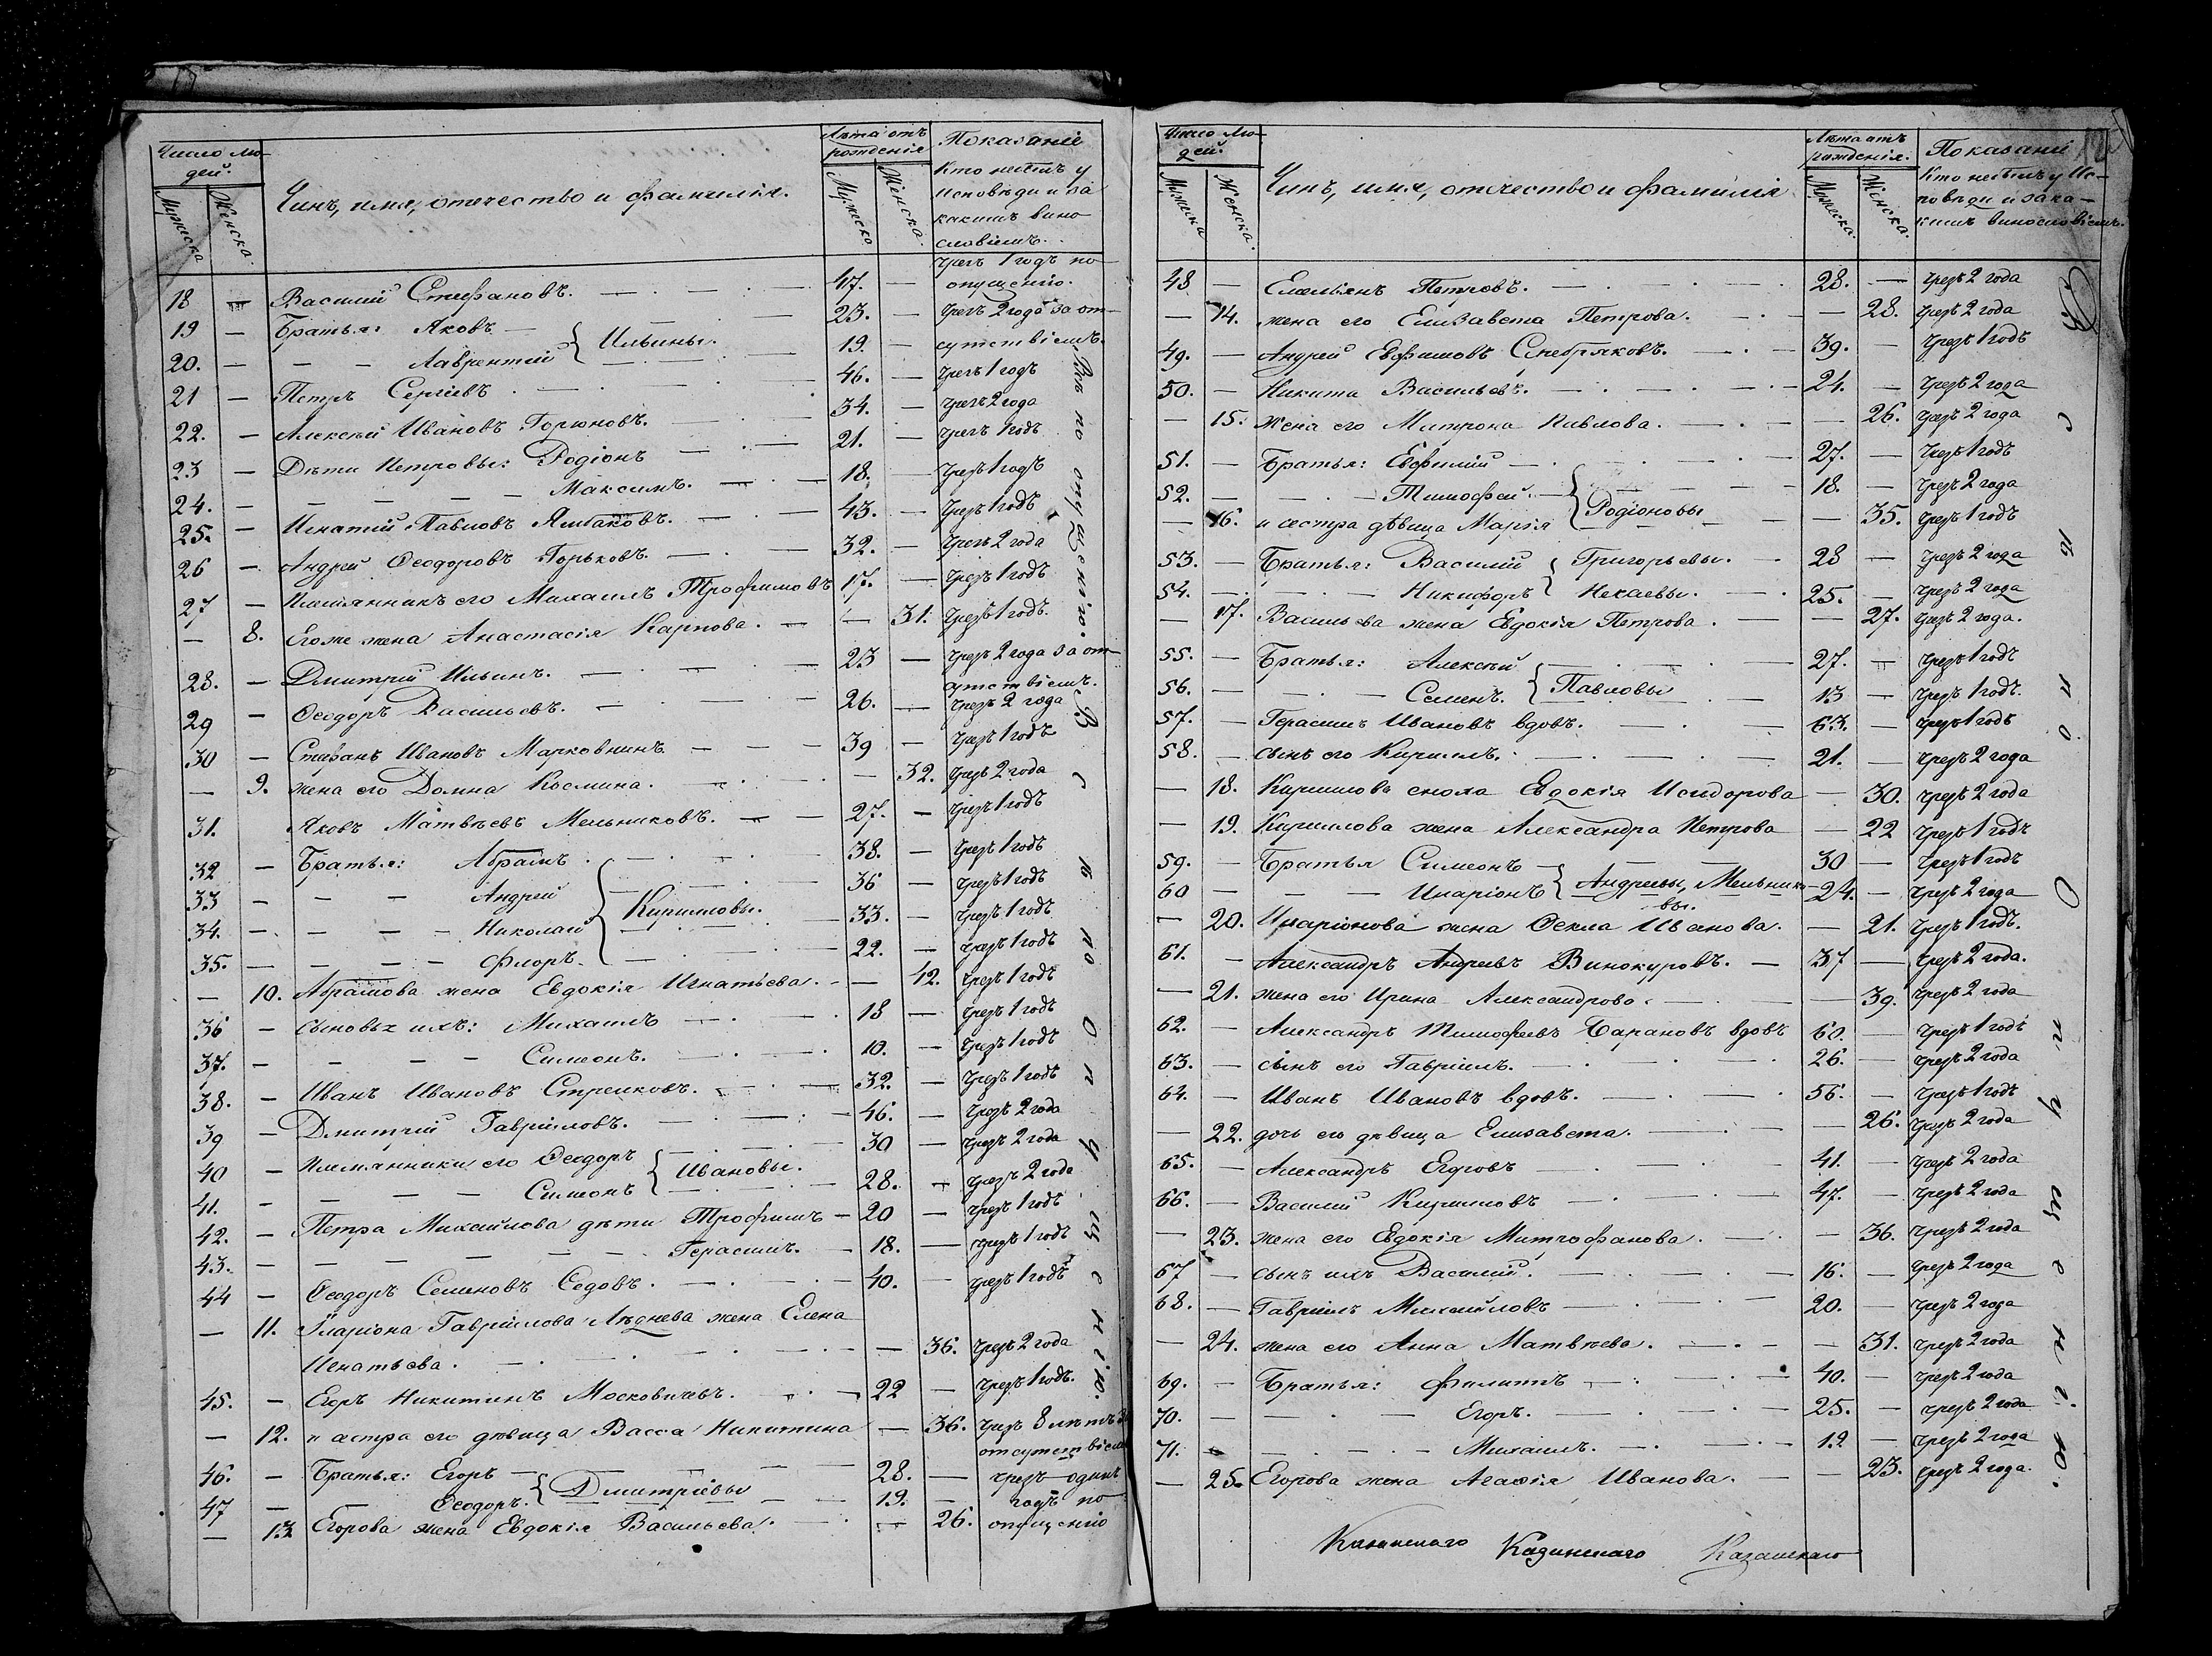 Число лю-
дей.
Мужеска
Женска.
Чинъ, имя, отечество и фамилія.
Лѣта отъ
рожденія
Мужеско
Женска.
Показаніе
Кто небылъ у
Исповѣди и за
какимъ вино
словіемъ.
18 — Василій Стефановъ. 47. — чрезъ 1 годъ по
опущенію.
19 — Братья: Яковъ 23. — чрезъ 2 года за от-
20. — Лаврентій } Ильины. 19. — сутствіемъ.
21 — Петръ Сергіевъ 46. — чрезъ 1 годъ
22. — Алексѣй Ивановъ Горюновъ. 34. — чрезъ 2 года
23 — Дѣти Петровы: Родіонъ 21. — чрезъ 1 годъ
24. — Максимъ. 18. — чрезъ 1 годъ
25. — Игнатій Павловъ 43. — чрезъ 1 годъ
26 — Андрей Ѳеодоровъ Горьковъ. 32. — чрезъ 2 года
27 — Племянникъ его Михаилъ Трофимовъ 17. — чрезъ 1 годъ
— 8. Егоже жена Анастасія Карпова. — 31. чрезъ 1 годъ.
28. — Дмитрій Ильинъ. 23 — чрезъ 2 года за от-
сутствіемъ.
29 — Ѳеодоръ Васильевъ. 26. — чрезъ 2 года
30 — Стефанъ Ивановъ Марковнинъ 39 — чрезъ 1 годъ
— 9. жена его Домна Космина. — 32. чрезъ 2 года
31. Яковъ Матвѣевъ Мельниковъ. 27. — чрезъ 1 годъ
32 — Братья: Абрамъ 38. — чрезъ 1 годъ
33 — Андрей 36 — чрезъ 1 годъ
34. — Николай } Кириловы. 33. — чрезъ 1 годъ
35. — Флоръ. 22. — чрезъ 1 годъ
— 10. Абрамова жена Евдокія Игнатьева. — 42. чрезъ 1 годъ
36 — сыновья ихъ: Михаилъ 18 — чрезъ 1 годъ
37. — Симеонъ. 10. — чрезъ 1 годъ
38. — Иванъ Ивановъ Стрелковъ. 32. — чрезъ 1 годъ
39 — Дмитрій Гавріиловъ. 46. — чрезъ 2 года
40 — Племянники его Ѳеодоръ 30 — чрезъ 2 года
41. — Симеонъ } Ивановы. 28. — чрезъ 2 года
42. — Петра Михайлова дѣти Трофимъ 20 — чрезъ 1 годъ
43. — Герасимъ. 18. — чрезъ 1 годъ
44 — Ѳеодоръ Семеновъ Седовъ. 40. — чрезъ 1 годъ
— 11. Иларіона Гавріилова Лѣднева жена Елена
Игнатьева. — 36. чрезъ 2 года
45. — Егоръ Никитинъ Московичевъ. 22 — чрезъ 1 годъ.
— 12. и сестра его дѣвица Васса Никитина — 36. чрезъ 8 лѣтъ за
отсутствіем
46. — Братья: Егоръ 28. — чрезъ одинъ
47 — Ѳеодоръ. } Дмитріевы 19. — годъ по
— 13 Егорова жена Евдокія Васильева. — 26. опущенію
Всѣ по опущенію.
Всѣ по опущенію.
Число лю-
дей.
Мужеска
Женска.
Чинъ, имя, отечество и фамилія
Лѣта отъ
рожденія.
Мужеска.
Женска.
Показаніе
Кто небылъ у Ис-
повѣди и за ка-
кимъ винословіемъ.
48 — Емельянъ Петровъ. 28. — чрезъ 2 года
— 14. жена его Елизавета Петрова. — 28. чрезъ 2 года
49. — Андрей Евфимовъ Серебряковъ. 39. — чрезъ 1 годъ
50. — Никита Васильевъ. 24. — чрезъ 2 года
— 15. жена его Митрона Павлова. — 26. чрезъ 2 года
51. — Братья: Евфимій 27. — чрезъ 1 годъ
52. — Тимофей. 18. — чрезъ 2 года
— 16. и сестра дѣвица Марія } Родіоновы — 35. чрезъ 1 годъ
53. — Братья: Василій } Григорьевы. 28 — чрезъ 2 года
54. — Никифоръ } Некаевы. 25. — чрезъ 2 года
— 17. Васильева жена Евдокія Петрова. — 27. чрезъ 2 года.
55. — Братья: Алексѣй 27. — чрезъ 1 годъ
56. — Семенъ. } Павловы 13 — чрезъ 1 годъ.
57. — Герасимъ Ивановъ вдовъ. 63. — чрезъ 1 годъ
58. — сынъ его Кириллъ. 21. — чрезъ 2 года
— 18. Кириллова сноха Евдокія Исидорова — 30. чрезъ 2 года
— 19. Кириллова жена Александра Петрова — 22 чрезъ 1 годъ
59. — Братья Симеонъ 30 — чрезъ 1 годъ
60 — Иларіонъ } Андреевы, Мельнико-
вы. 24. — чрезъ 2 года
— 20. Иларіонова жена Ѳекла Иванова. — 21. чрезъ 1 годъ.
61. — Александръ Андреевъ Винокуровъ. 37 — чрезъ 2 года.
— 21. жена его Ирина Александрова. — 39. чрезъ 2 года
62. — Александръ Тимофеевъ Барановъ вдовъ 60. — чрезъ 1 годъ
63. — сынъ его Гавріилъ. 26. — чрезъ 2 года
64. — Иванъ Ивановъ вдовъ. 56. — чрезъ 1 годъ
— 22. дочь его дѣвица Елисавета. — 26. чрезъ 2 года
65. — Александръ Егоровъ 41. — чрезъ 2 года
66. — Василій Кирилловъ 47. — чрезъ 2 года
— 23. жена его Евдокія Митрофанова. — 36. чрезъ 2 года
67 — сынъ ихъ Василій. 16. — чрезъ 2 года
68. — Гавріилъ Михайловъ 20. — чрезъ 2 года
— 24. жена его Анна Матвѣева. — 31. чрезъ 2 года
69. — Братья: Филиппъ 40. — чрезъ 2 года
70. — Егоръ. 25. — чрезъ 2 года
71. — Михаилъ. 12 — чрезъ 2 года
— 25. Егорова жена Агафія Иванова. — 23. чрезъ 2 года.
Всѣ по опущенію.
Казанскаго Казанскаго Казанскаго